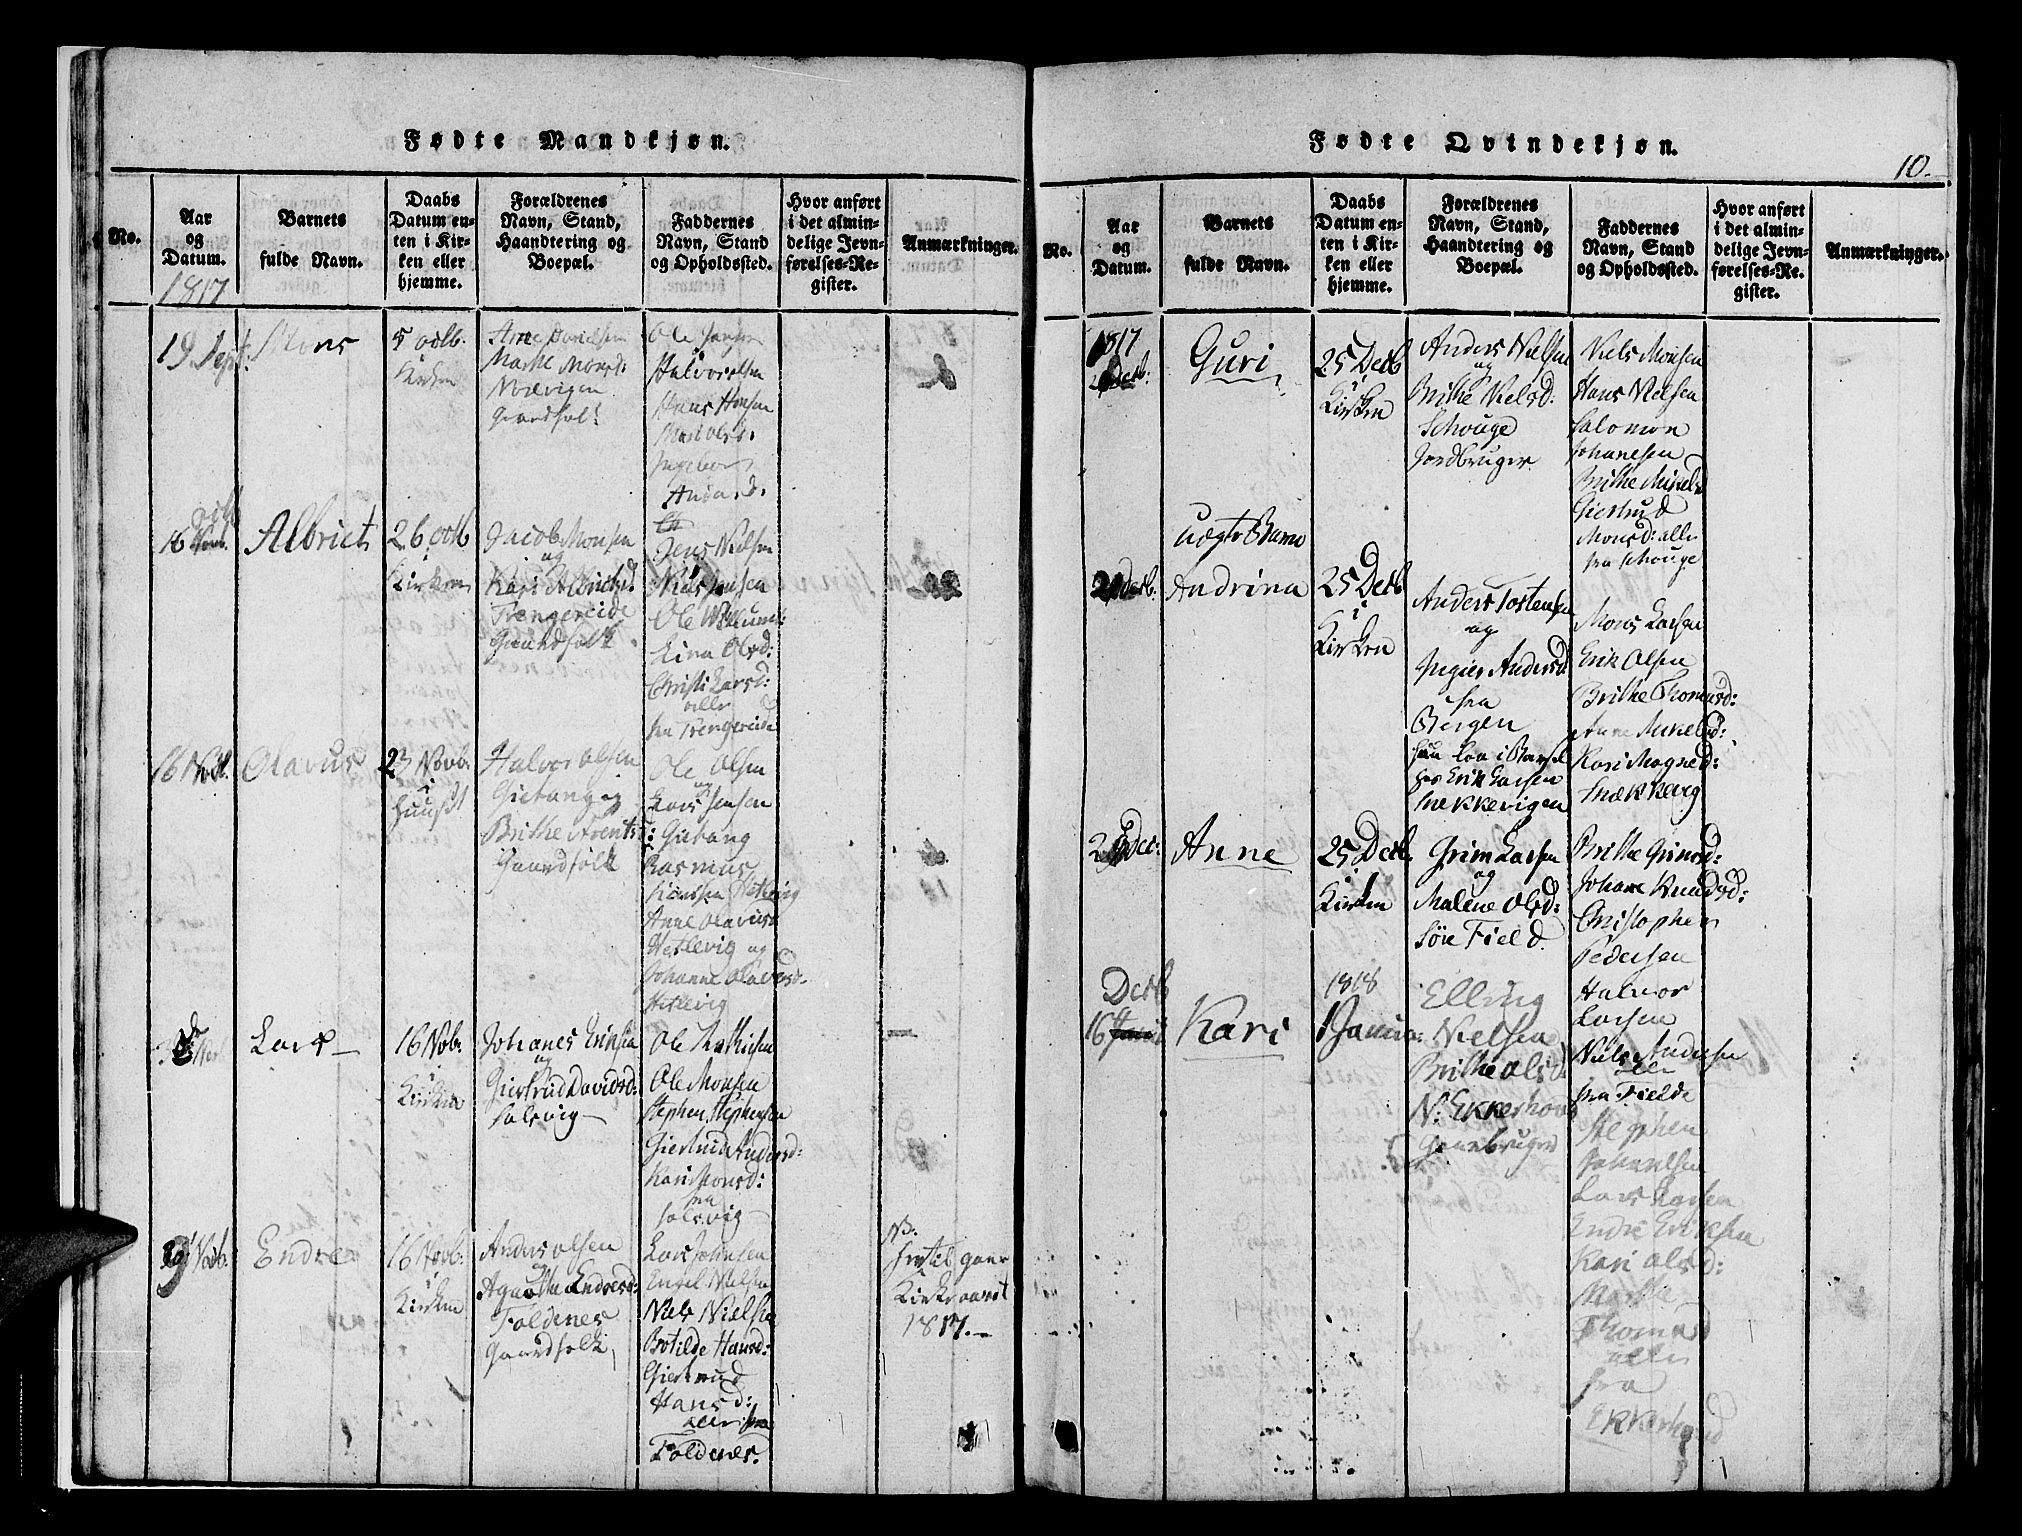 Fødte Mandkjøn.
No.
Aar
og
Datum.
1817
Barnets
fulde Navn.
Daabs
Datum en-
ten i Kir-
ken eller
hjemme.
Forældrenes
Navn, Stand,
Haandtering og
Boepæl.
Faddernes
Navn, Stand
og Opholdssted.
Hvor anført
i det almin-
delige Jevn-
førelses-Re-
gister.
Anmærkninger.
19 Sept:
Mons
5 octb.
Kirken
Arne
Marthe Monsd:
Gaardfol:
Ole
Halvor olsen
Hans Hansen
Mari Olsd:
Ingebor
Andersd.
16
octb
Albrict
26 octb
i
Kirken
Jacob Monsen
og
Kari Albrictsd.
Trengereide
Gaardfolk
Jens Nielsen
Niels Jensen
Ole
Lina Olsd:
Christi Larsd:
alle
fra Trengereide
16 Novb.
Olavus
23 Novb.
i
Huuset
Halvor olsen
Gietang og
Brithe Arentsd:
Gaardfolk
Ole Olsen
og
Lars Jensen
Gietang
Rasmus
Hetlevig
Anne Olavusd
Hetlevig og
Johanne Olavusd.
Hetlevig
Lars
16 Novb:
i
Kirken
Johanes Eriksen
og
Giertrud Davidsd:
Salsvig
Ole Mathisen
Ole Monsen
Stephen Stephensen
Giertrud Andersd:
Kari Monsd:
fra
Salsvig
9 Novb:
Endre
16 Novb:
i
Kirken
Anders olsen
og
Agathe Endresd:
Foldenes
Gaardfolk
Lars Johnsen
Engel Nielsen
Niels Nielsen
Botilde Hansd:
Giertrud
Hansd:
alle fra
Foldenes.
NB.
til
Kirke
1817.
Fødte Qvindekjøn.
10.
No.
Aar
og
Datum.
Barnets
fulde Navn.
Daabs
Datum en-
ten i Kir-
ken eller
hjemme.
Forældrenes
Navn, Stand,
Haandtering og
Boepæl.
Faddernes
Navn, Stand
og Opholdssted.
Hvor anført
i det almin-
delige Jevn-
førelses-Re-
gister.
Anmærkninger.
1817
Decb:
Guri
25 Decb
i
Kirken
Anders Nielsen
og
Brithe Nielsd:
Schouge
Jordbruger
Niels Monsen
Hans Nielsen
Salomon
Johanesen
Brithe Mikelsd
Giertrud
Monsd: alle
fra Schouge
Uægte Barn
Decb.
Andrina
25 Decb
i
Kirken
Anders Tostensen
og
Ingier Andersd
fra
Bergen
hun laa i Barsel
hos Erik Larsen
Snekkevigen
Mons Larsen
Erik Olsen
Brithe Thomasd:
Anne Mikelsd:
Kari Magnesd:
Snækkevig
Dec:
Anne
25 Decb.
i
Kirken
Grim Larsen
og
Malene Olsd:
Søre Field
Brithe Grimsd:
Johane Knudsd:
Christopher
Pedersen
Halvor
Larsen
Niels Andersen
alle
fra Fielde
Decb
16
Kari
1818
1 Janua:
Elling
Nielsen
Brithe olsd
N: Ekkerhovd
Gaardbruger
Stephen
Johanesen
Lars Larsen
Endre Eriksen
Kari olsd:
Marthe
Thomasd
alle
fra
Ekkerhovd